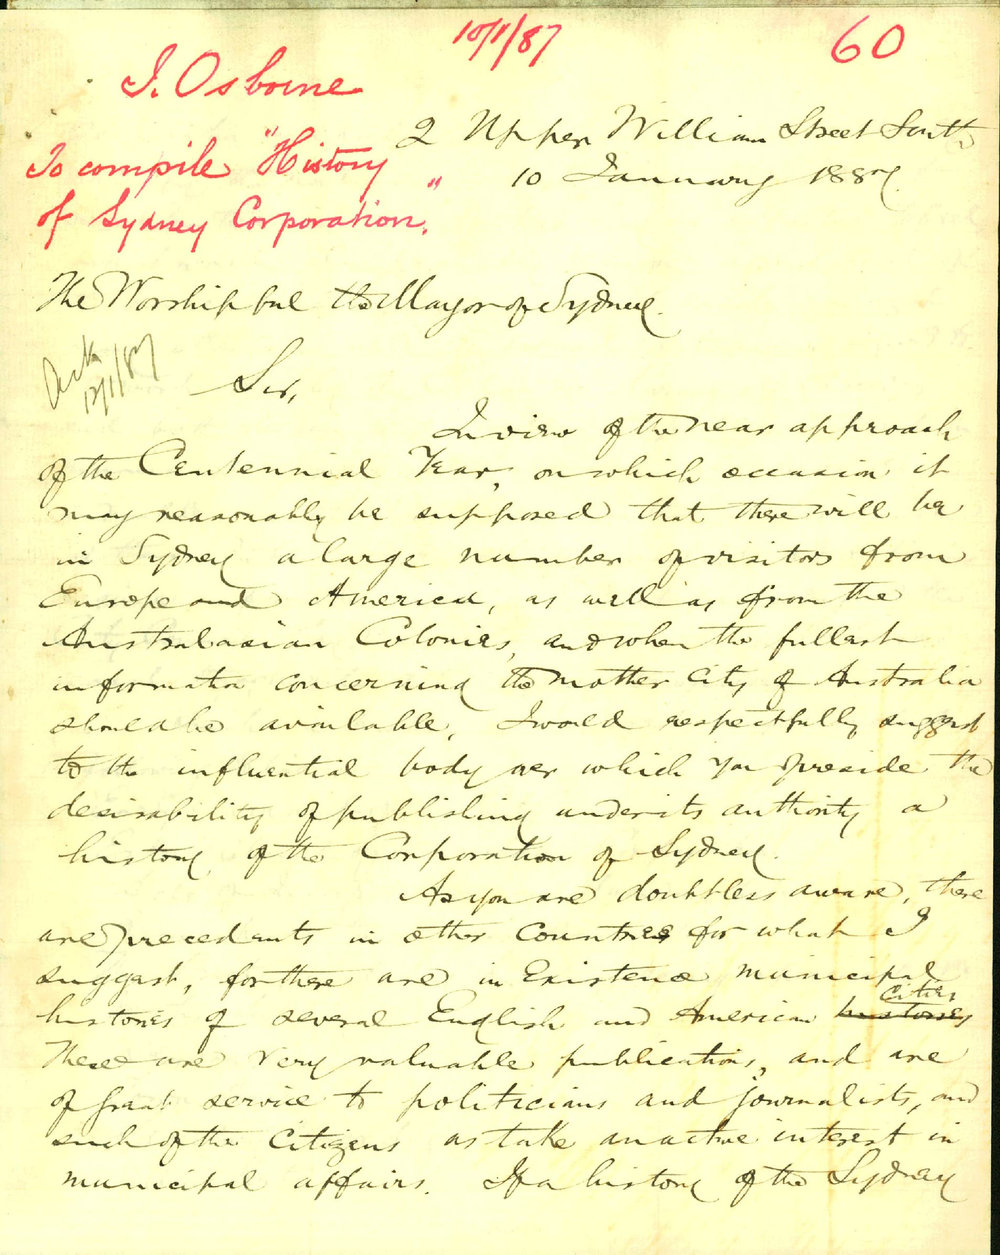 10/1/87
60
J. Osborne
To compile "History
of Sydney Corporation."
2 Upper William Street South
10 January 1887.
The Worshipful the Mayor of Sydney.
Ack
12/1/87
Sir,
In view of the near approach
of the Centennial Year, on which occasion it
may reasonably be supposed that there will be
in Sydney a large number of visitors from
Europe and America, as well as from the
Australasian Colonies, and when the fullest
information concerning the mother city of Australia
should be available, I would respectfully suggest
to the influential body over which you preside the
desirability of publishing under its authority a
history of the Corporation of Sydney.
As you are doubtless aware, there
are precedents in other countries for what I
suggest, for there are in existence municipal
histories of several English and American histories cities
These are very valuable publications, and are
of great service to politicians and journalists, and
such of the citizens as take an active interest in
municipal affairs. If a history of the Sydney